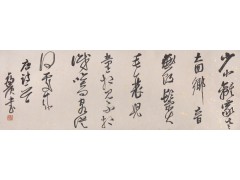 少小離家老
大回鄉音
無改鬢
毛衰兒
童相見不相
識笑問客從
何處來
唐詩